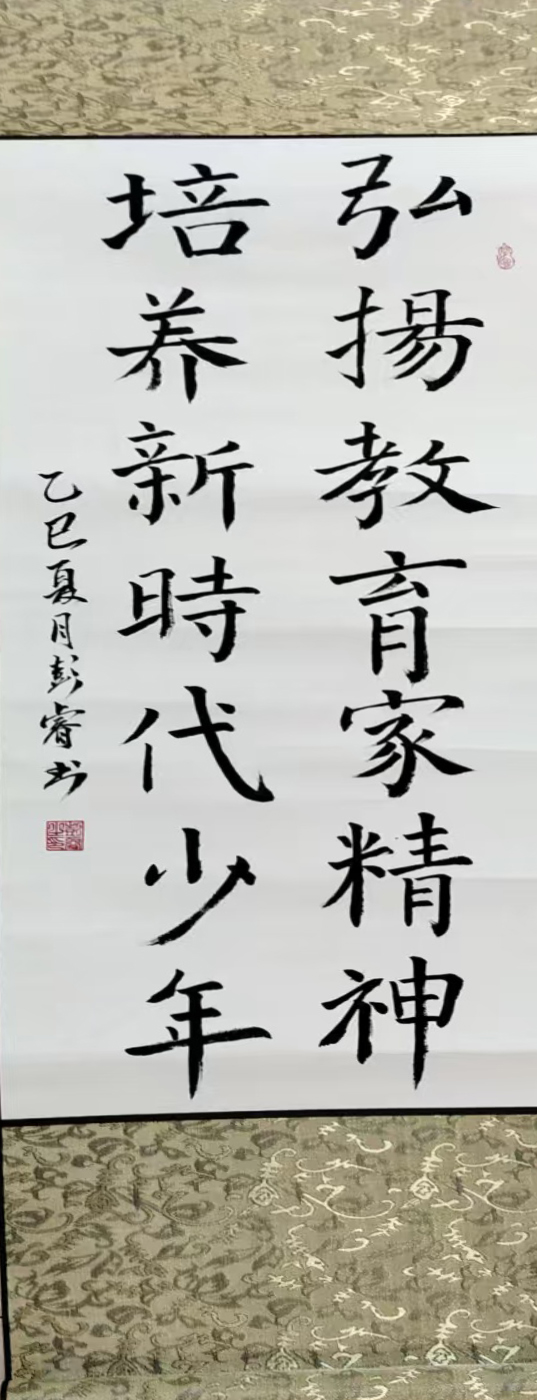 弘揚教育家精神
培养新時代少年
乙巳夏月彭睿书